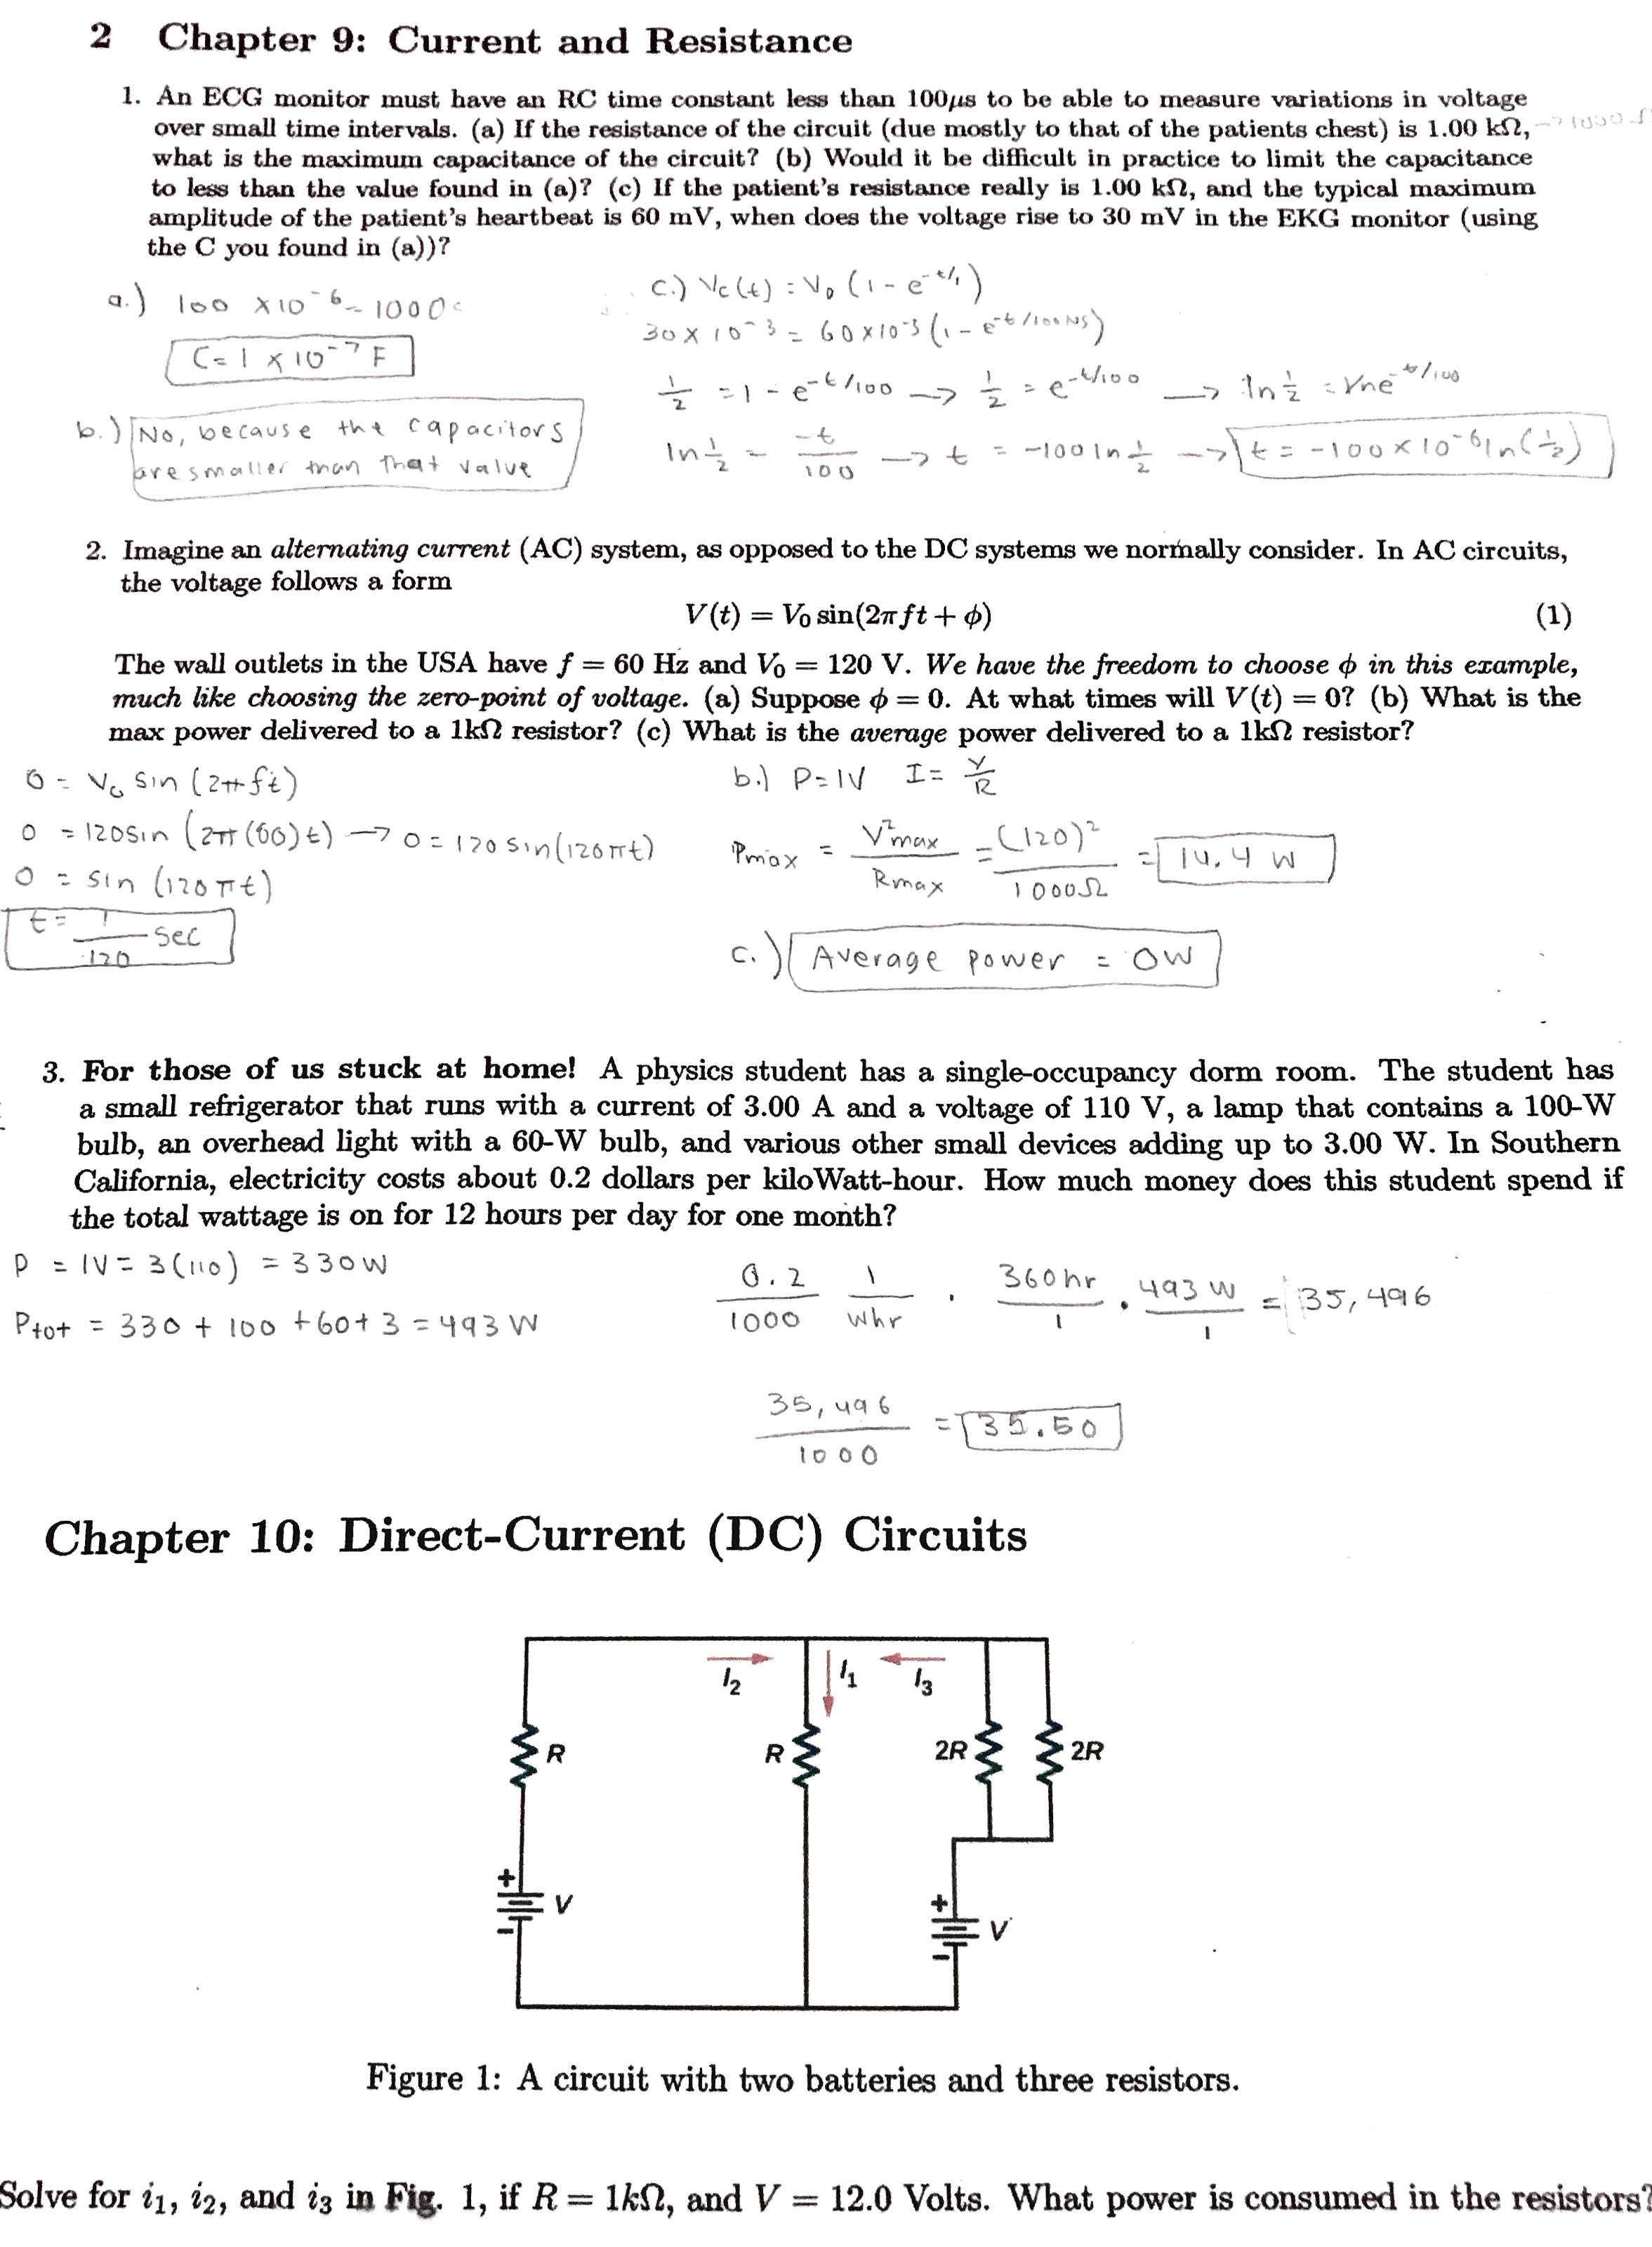 2 Chapter 9: Current and Resistance
1. An ECG monitor must have an RC time constant less than 100μs to be able to measure variations in voltage
over small time intervals. (a) If the resistance of the circuit (due mostly to that of the patients chest) is 1.00 kΩ, → 1000 Ω
what is the maximum capacitance of the circuit? (b) Would it be difficult in practice to limit the capacitance
to less than the value found in (a)? (c) If the patient's resistance really is 1.00 kΩ, and the typical maximum
amplitude of the patient's heartbeat is 60 mV, when does the voltage rise to 30 mV in the EKG monitor (using
the C you found in (a))?
a.) 100 × 10⁻⁶ = 1000c
C = 1 × 10⁻⁷ F
b.) No, because the capacitors
are smaller than that value
c.) Vc(t) = V₀ (1 - e^-t/τ)
30 × 10⁻³ = 60 × 10⁻³ (1 - e^-t/100 μs)
1/2 = 1 - e^-t/100 → 1/2 = e^-t/100 → ln 1/2 = lne^-t/100
ln 1/2 = -t/100 → t = -100 ln 1/2 → t = -100 × 10⁻⁶ ln(1/2)
2. Imagine an alternating current (AC) system, as opposed to the DC systems we normally consider. In AC circuits,
the voltage follows a form
V(t) = V₀ sin(2πft + ϕ) (1)
The wall outlets in the USA have f = 60 Hz and V₀ = 120 V. We have the freedom to choose ϕ in this example,
much like choosing the zero-point of voltage. (a) Suppose ϕ = 0. At what times will V(t) = 0? (b) What is the
max power delivered to a 1kΩ resistor? (c) What is the average power delivered to a 1kΩ resistor?
0 = V₀ sin (2πft)
0 = 120sin (2π(60)t) → 0 = 120 sin(120πt)
0 = sin (120πt)
t = 1/120 sec
b.) P = IV I = V/R
Pmax = V²max/Rmax = (120)²/1000Ω = 14.4 W
c.) Average power = 0W
3. For those of us stuck at home! A physics student has a single-occupancy dorm room. The student has
a small refrigerator that runs with a current of 3.00 A and a voltage of 110 V, a lamp that contains a 100-W
bulb, an overhead light with a 60-W bulb, and various other small devices adding up to 3.00 W. In Southern
California, electricity costs about 0.2 dollars per kiloWatt-hour. How much money does this student spend if
the total wattage is on for 12 hours per day for one month?
P = IV = 3(110) = 330W
Ptot = 330 + 100 + 60 + 3 = 493 W
0.2/1000 1/Whr · 360hr/1 · 493 W/1 = 35,496
35,496/1000 = 35.50
Chapter 10: Direct-Current (DC) Circuits
I2 I1 I3
R R 2R 2R
+ V -
+ V -
Figure 1: A circuit with two batteries and three resistors.
Solve for i₁, i₂, and i₃ in Fig. 1, if R = 1kΩ, and V = 12.0 Volts. What power is consumed in the resistors?